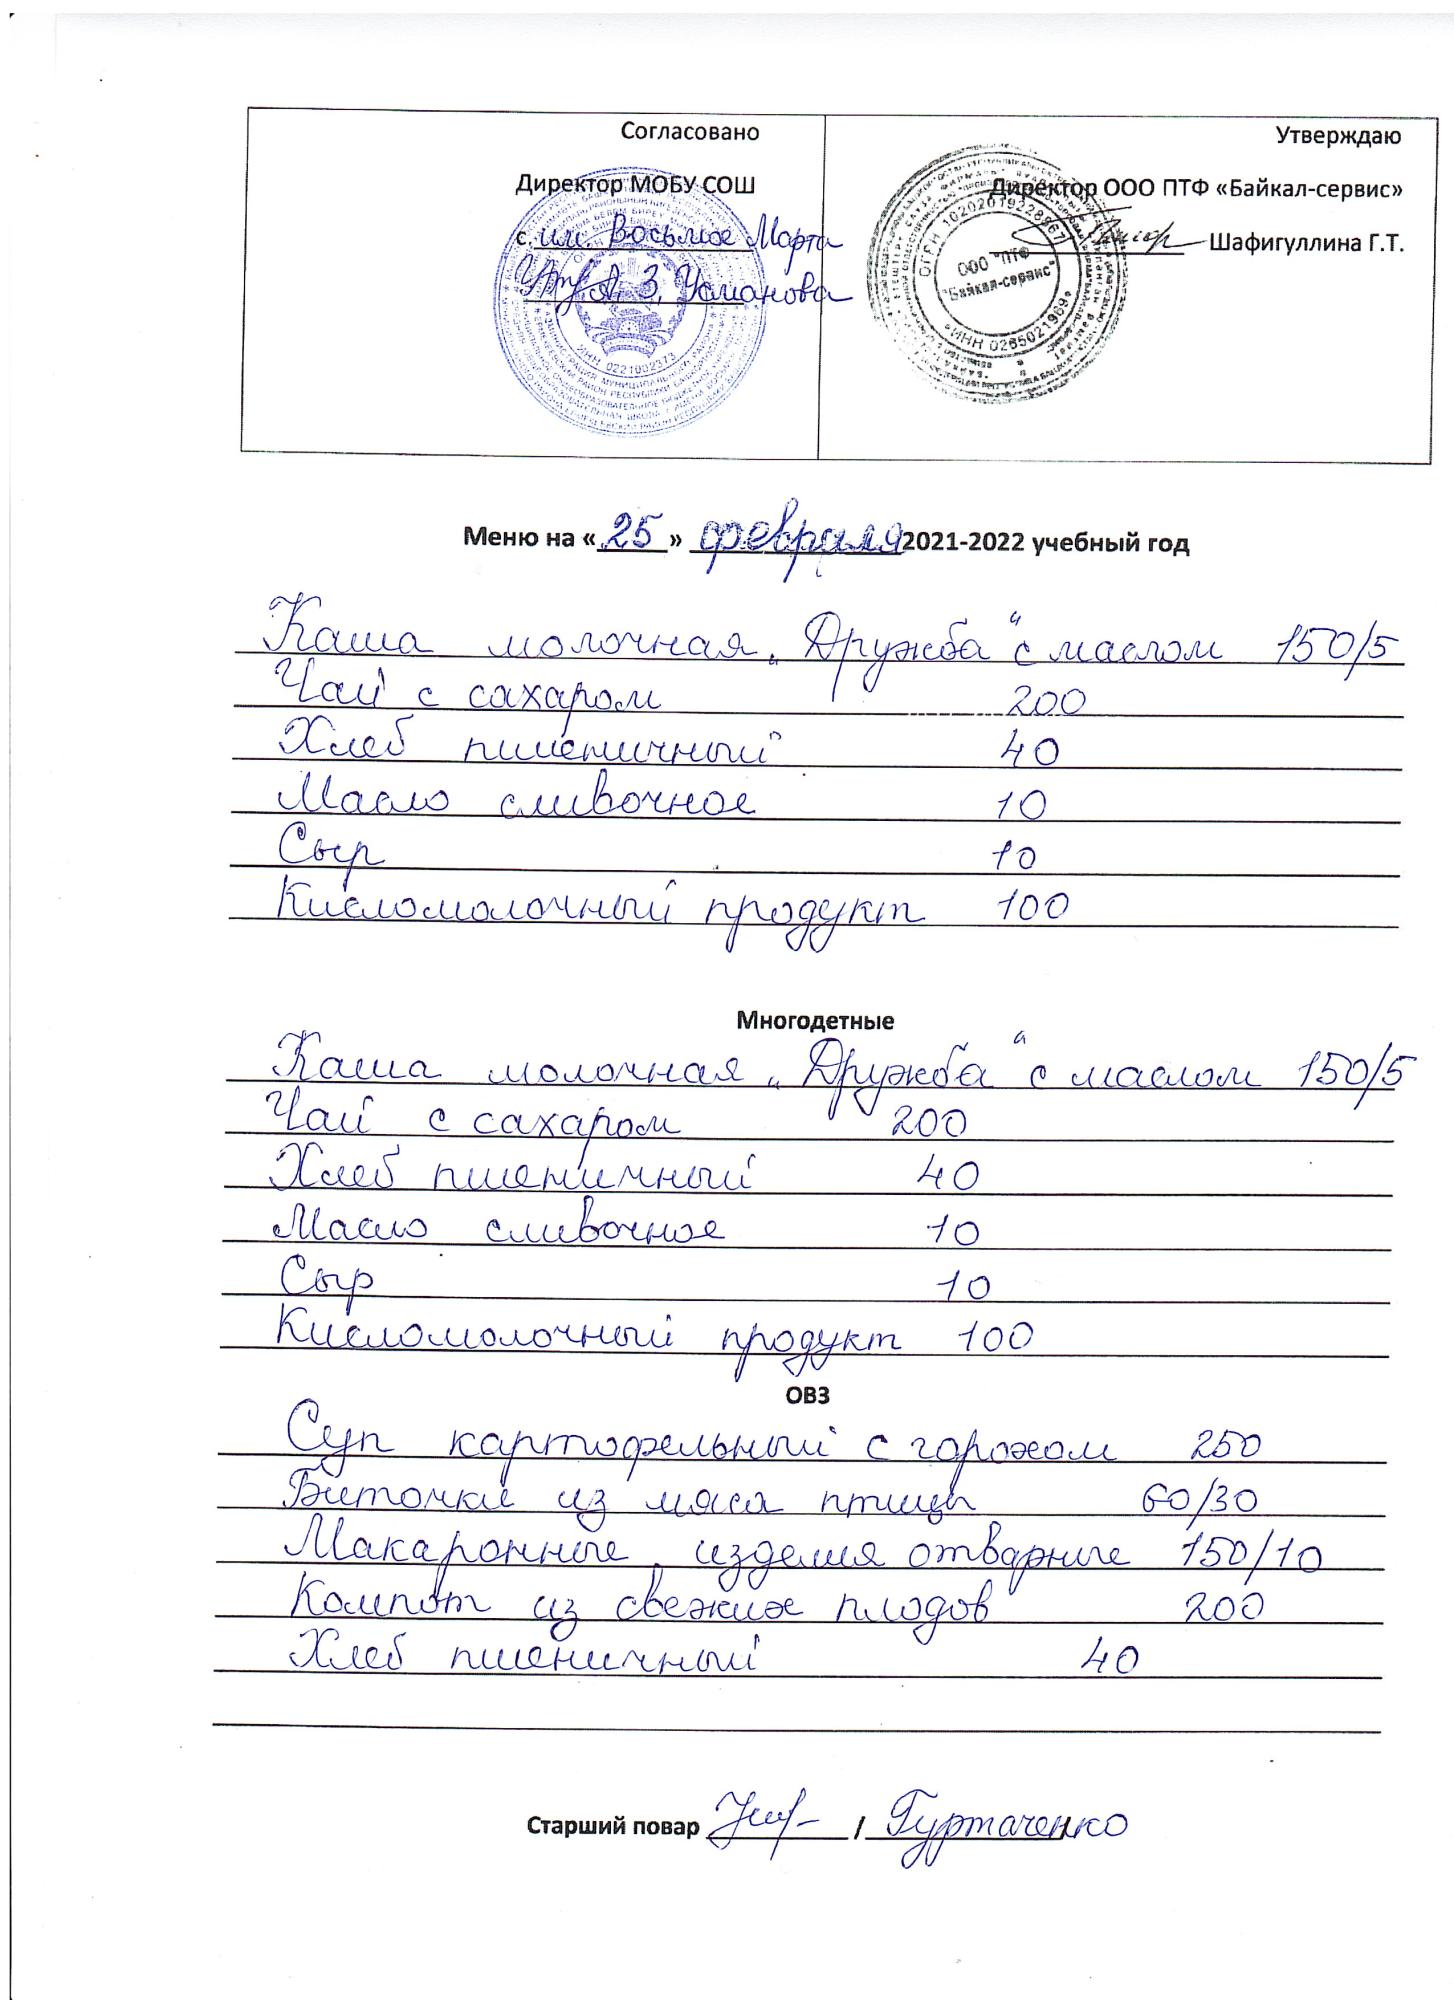 Согласовано
Директор МОБУ СОШ
с. им. Восьмое Марта
А. З. Усманова
ИНН 0221002373
Утверждаю
Директор ООО ПТФ «Байкал-сервис»
Шафигуллина Г.Т.
ОГРН 1020201922896
ООО "ПТФ
"Байкал-сервис"
ИНН 0265021969
Меню на «25» февраля 2021-2022 учебный год
Каша молочная „Дружба“ с маслом 150/5
Чай с сахаром 200
Хлеб пшеничный 40
Масло сливочное 10
Сыр 10
Кисломолочный продукт 100
Многодетные
Каша молочная „Дружба“ с маслом 150/5
Чай с сахаром 200
Хлеб пшеничный 40
Масло сливочное 10
Сыр 10
Кисломолочный продукт 100
ОВЗ
Суп картофельный с горохом 250
Биточки из мяса птицы 60/30
Макаронные изделия отварные 150/10
Компот из свежих плодов 200
Хлеб пшеничный 40
Старший повар / Гуртаченко